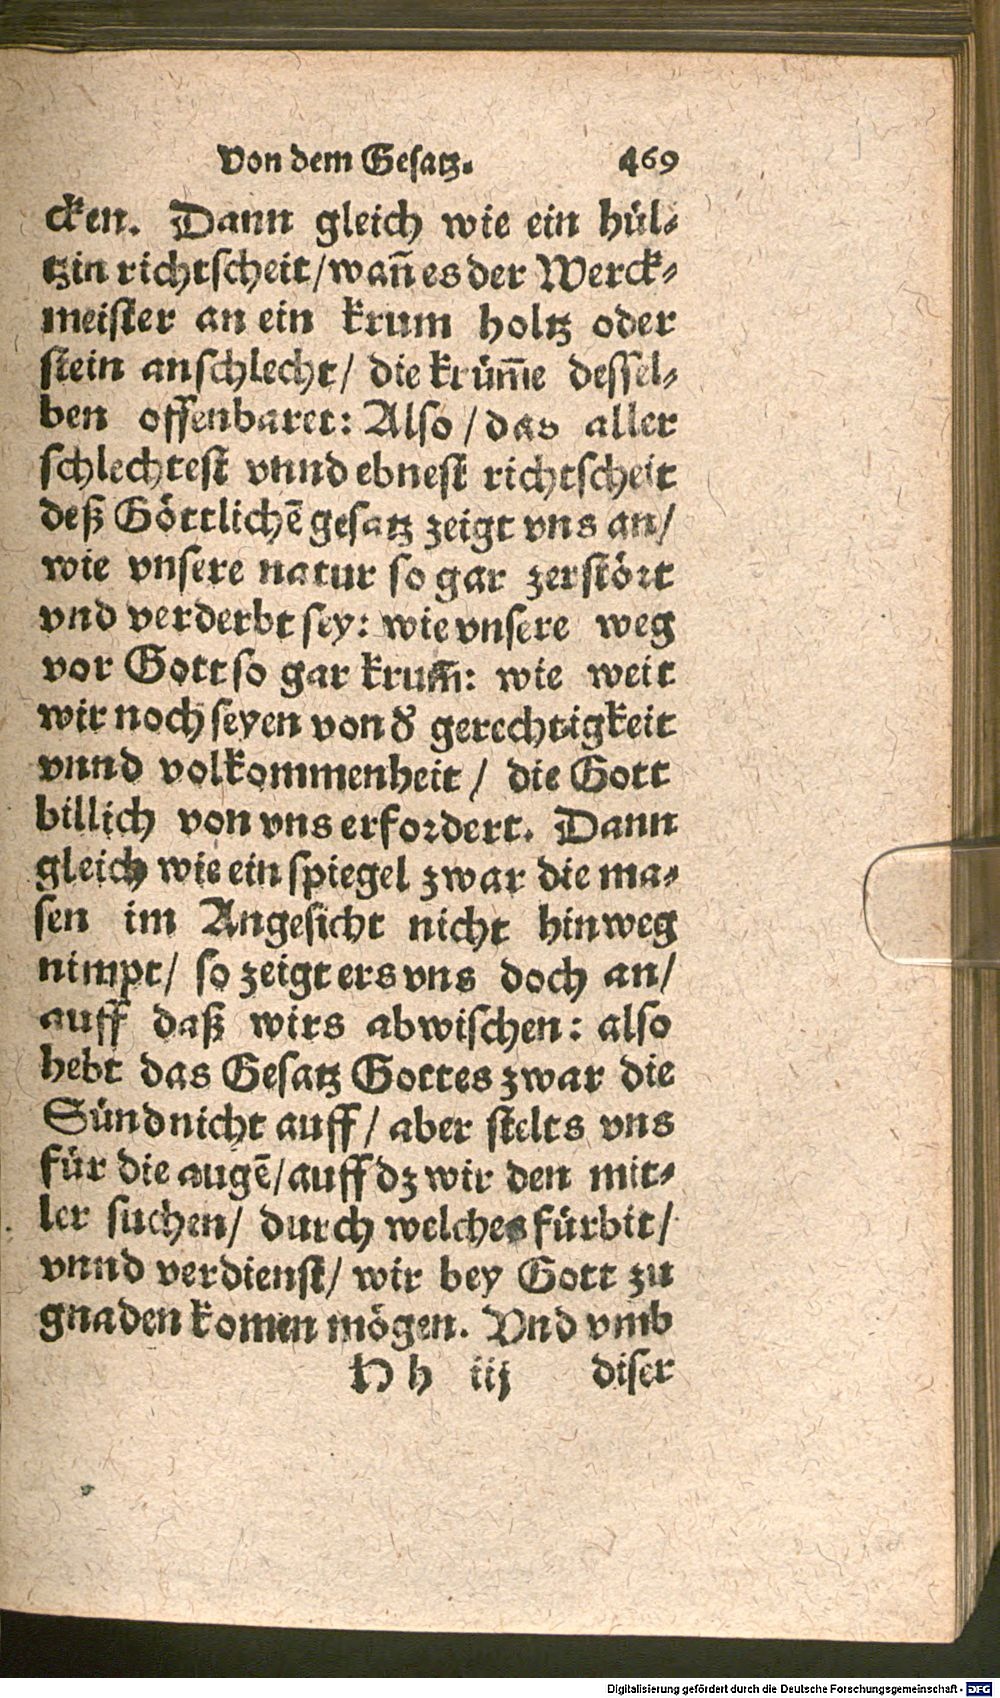 Von dem Gesatz. 469
cken. Dann gleich wie ein hül⸗
tzin richtscheit/wañ es der Werck⸗
meister an ein krum holtz oder
stein anschlecht/ die krüm̃e dessel⸗
ben offenbaret: Also/das aller
schlechtest vnnd ebnest richtscheit
deß Göttlichẽ gesatz zeigt vns an/
wie vnsere natur so gar zerstört
vnd verderbt sey: wie vnsere weg
vor Gott so gar krum̃: wie weit
wir noch seyen von d̕ gerechtigkeit
vnnd volkommenheit/ die Gott
billich von vns erfordert. Dann
gleich wie ein spiegel zwar die ma⸗
sen im Angesicht nicht hinweg
nimpt/ so zeigt ers vns doch an/
auff daß wirs abwischen: also
hebt das Gesatz Gottes zwar die
Sünd nicht auff/ aber stelts vns
für die augẽ/auff dz wir den mit⸗
ler suchen/ durch welches fürbit/
vnnd verdienst/ wir bey Gott zu
gnaden komen mögen. Vnd vmb
H h iij diser
Digitalisierung gefördert durch die Deutsche Forschungsgemeinschaft - DFG